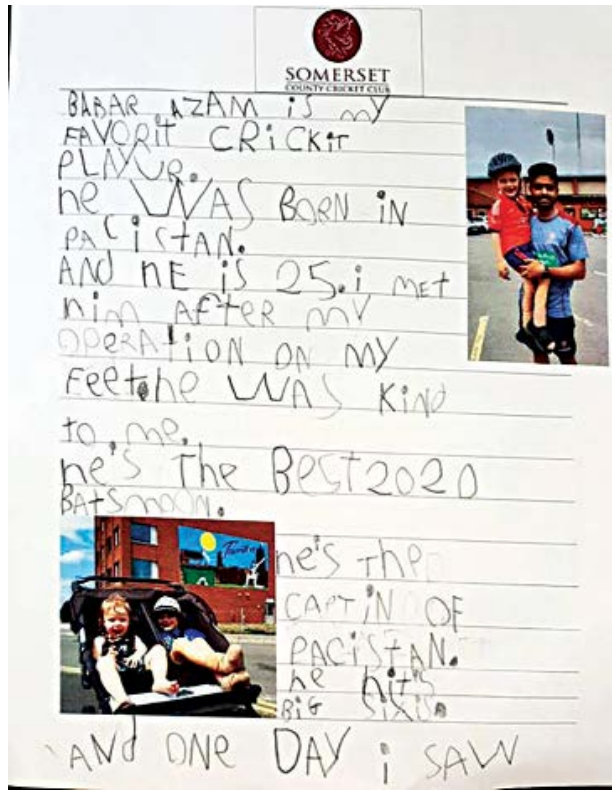 SOMERSET
COUNTY CRICKET CLUB
BABAR AZAM is my
FAVORit CRiCKit
PLAYUR.
he WAS BORN iN
PACiStAN.
AND hE iS 25. i MEt
him AFter MY
OPERAtiON ON MY
Feet. he WAS KiND
to me.
he's The BeSt 2020
BAtSmooN.
he's The
CAPTiN OF
PACiStAN.
he hit's
BiG SiXiS.
AND ONE DAY i SAW